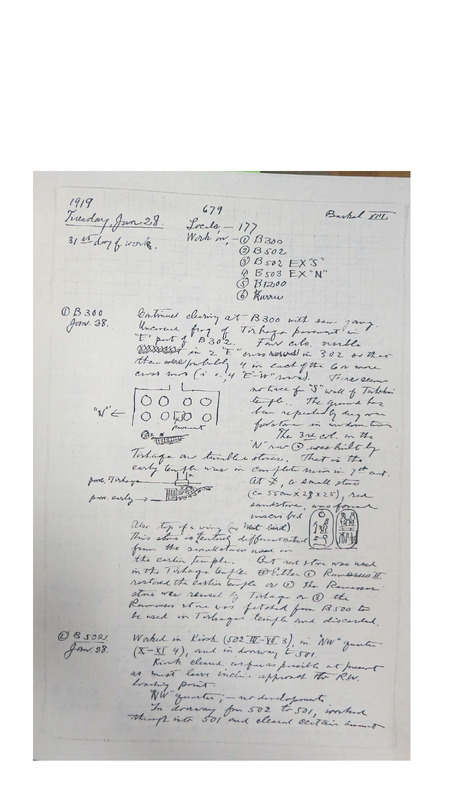 1919
679
Barkal VII
Tuesday, Jan 28.
Locals — 177
31st day of work.
Work on, — ① B300
② B502
③ B502 EX "S"
④ B503 EX "N"
⑤ B1200
⑥ Kurru
① B300
Jan. 28.
Continued clearing at B300 with same gang.
Uncovered frag of Taharqa pavement in
"E" part of B302. Four cols. visible
in 2 "E" cross rows in 302 so that
there were probably 4 in each of the 6 or more
cross rows (i.e. 4 "E-W" rows). There seems
no trace of "S" wall of Taharqa
temple. The ground has
been repeatedly dug over
"N" ←
pavement
The 3rd col. in the
"N" row was built by
Taharqa on tumbled stones. That is the
early temple was in complete ruin in 7th cent.
pave. Taharqa
pave. early
At X, a small stone
(ca 55cm X 28 X 25), red
sandstone, was found
Also top of a wing
This stone is entirely different
from the small stones used in
the earlier temple. But red stone was used
in the Taharqa temple. Either ① Rameses II
restored the earlier temple or ② the Ramesses
stone was reused by Taharqa or ③ the
Ramesses stone was fetched from B500 to
be used in Taharqa's temple and discarded.
② B 502
Jan. 28.
Worked in Kiosk (502 3), in "NW" quarter
(X-XI 4), and in doorway to 501.
Kiosk cleared as far as possible at present
as must leave incline approach the RW.
loading point.
"NW" quarter, — no developments.
In doorway from 502 to 501, worked
through into 501 and cleared certain amount